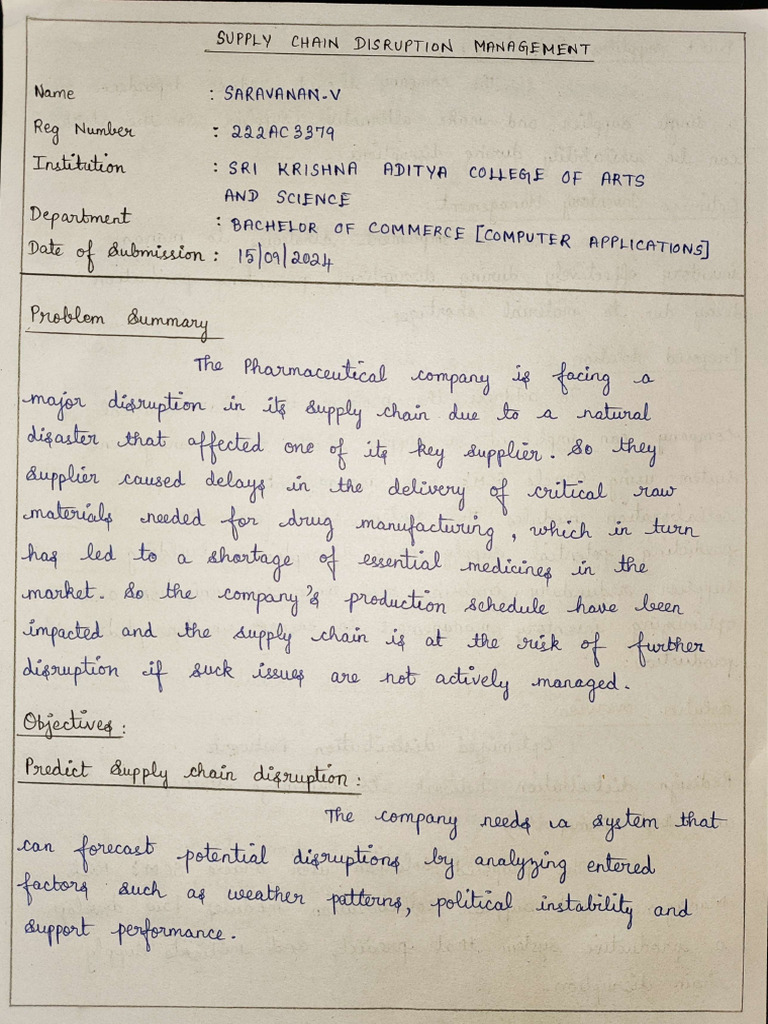 SUPPLY CHAIN DISRUPTION MANAGEMENT
Name : SARAVANAN-V
Reg Number : 222AC3379
Institution : SRI KRISHNA ADITYA COLLEGE OF ARTS
AND SCIENCE
Department : BACHELOR OF COMMERCE [COMPUTER APPLICATIONS]
Date of Submission : 15/09/2024
Problem Summary
The Pharmaceutical company is facing a
major disruption in its supply chain due to a natural
disaster that affected one of its key supplier. So they
supplier caused delays in the delivery of critical raw
materials needed for drug manufacturing, which in turn
has led to a shortage of essential medicines in the
market. So the company's production schedule have been
impacted and the supply chain is at the risk of further
disruption if suck issues are not actively managed.
Objectives :
Predict Supply chain disruption :
The company needs a system that
can forecast potential disruptions by analyzing entered
factors such as weather patterns, political instability and
support performance.